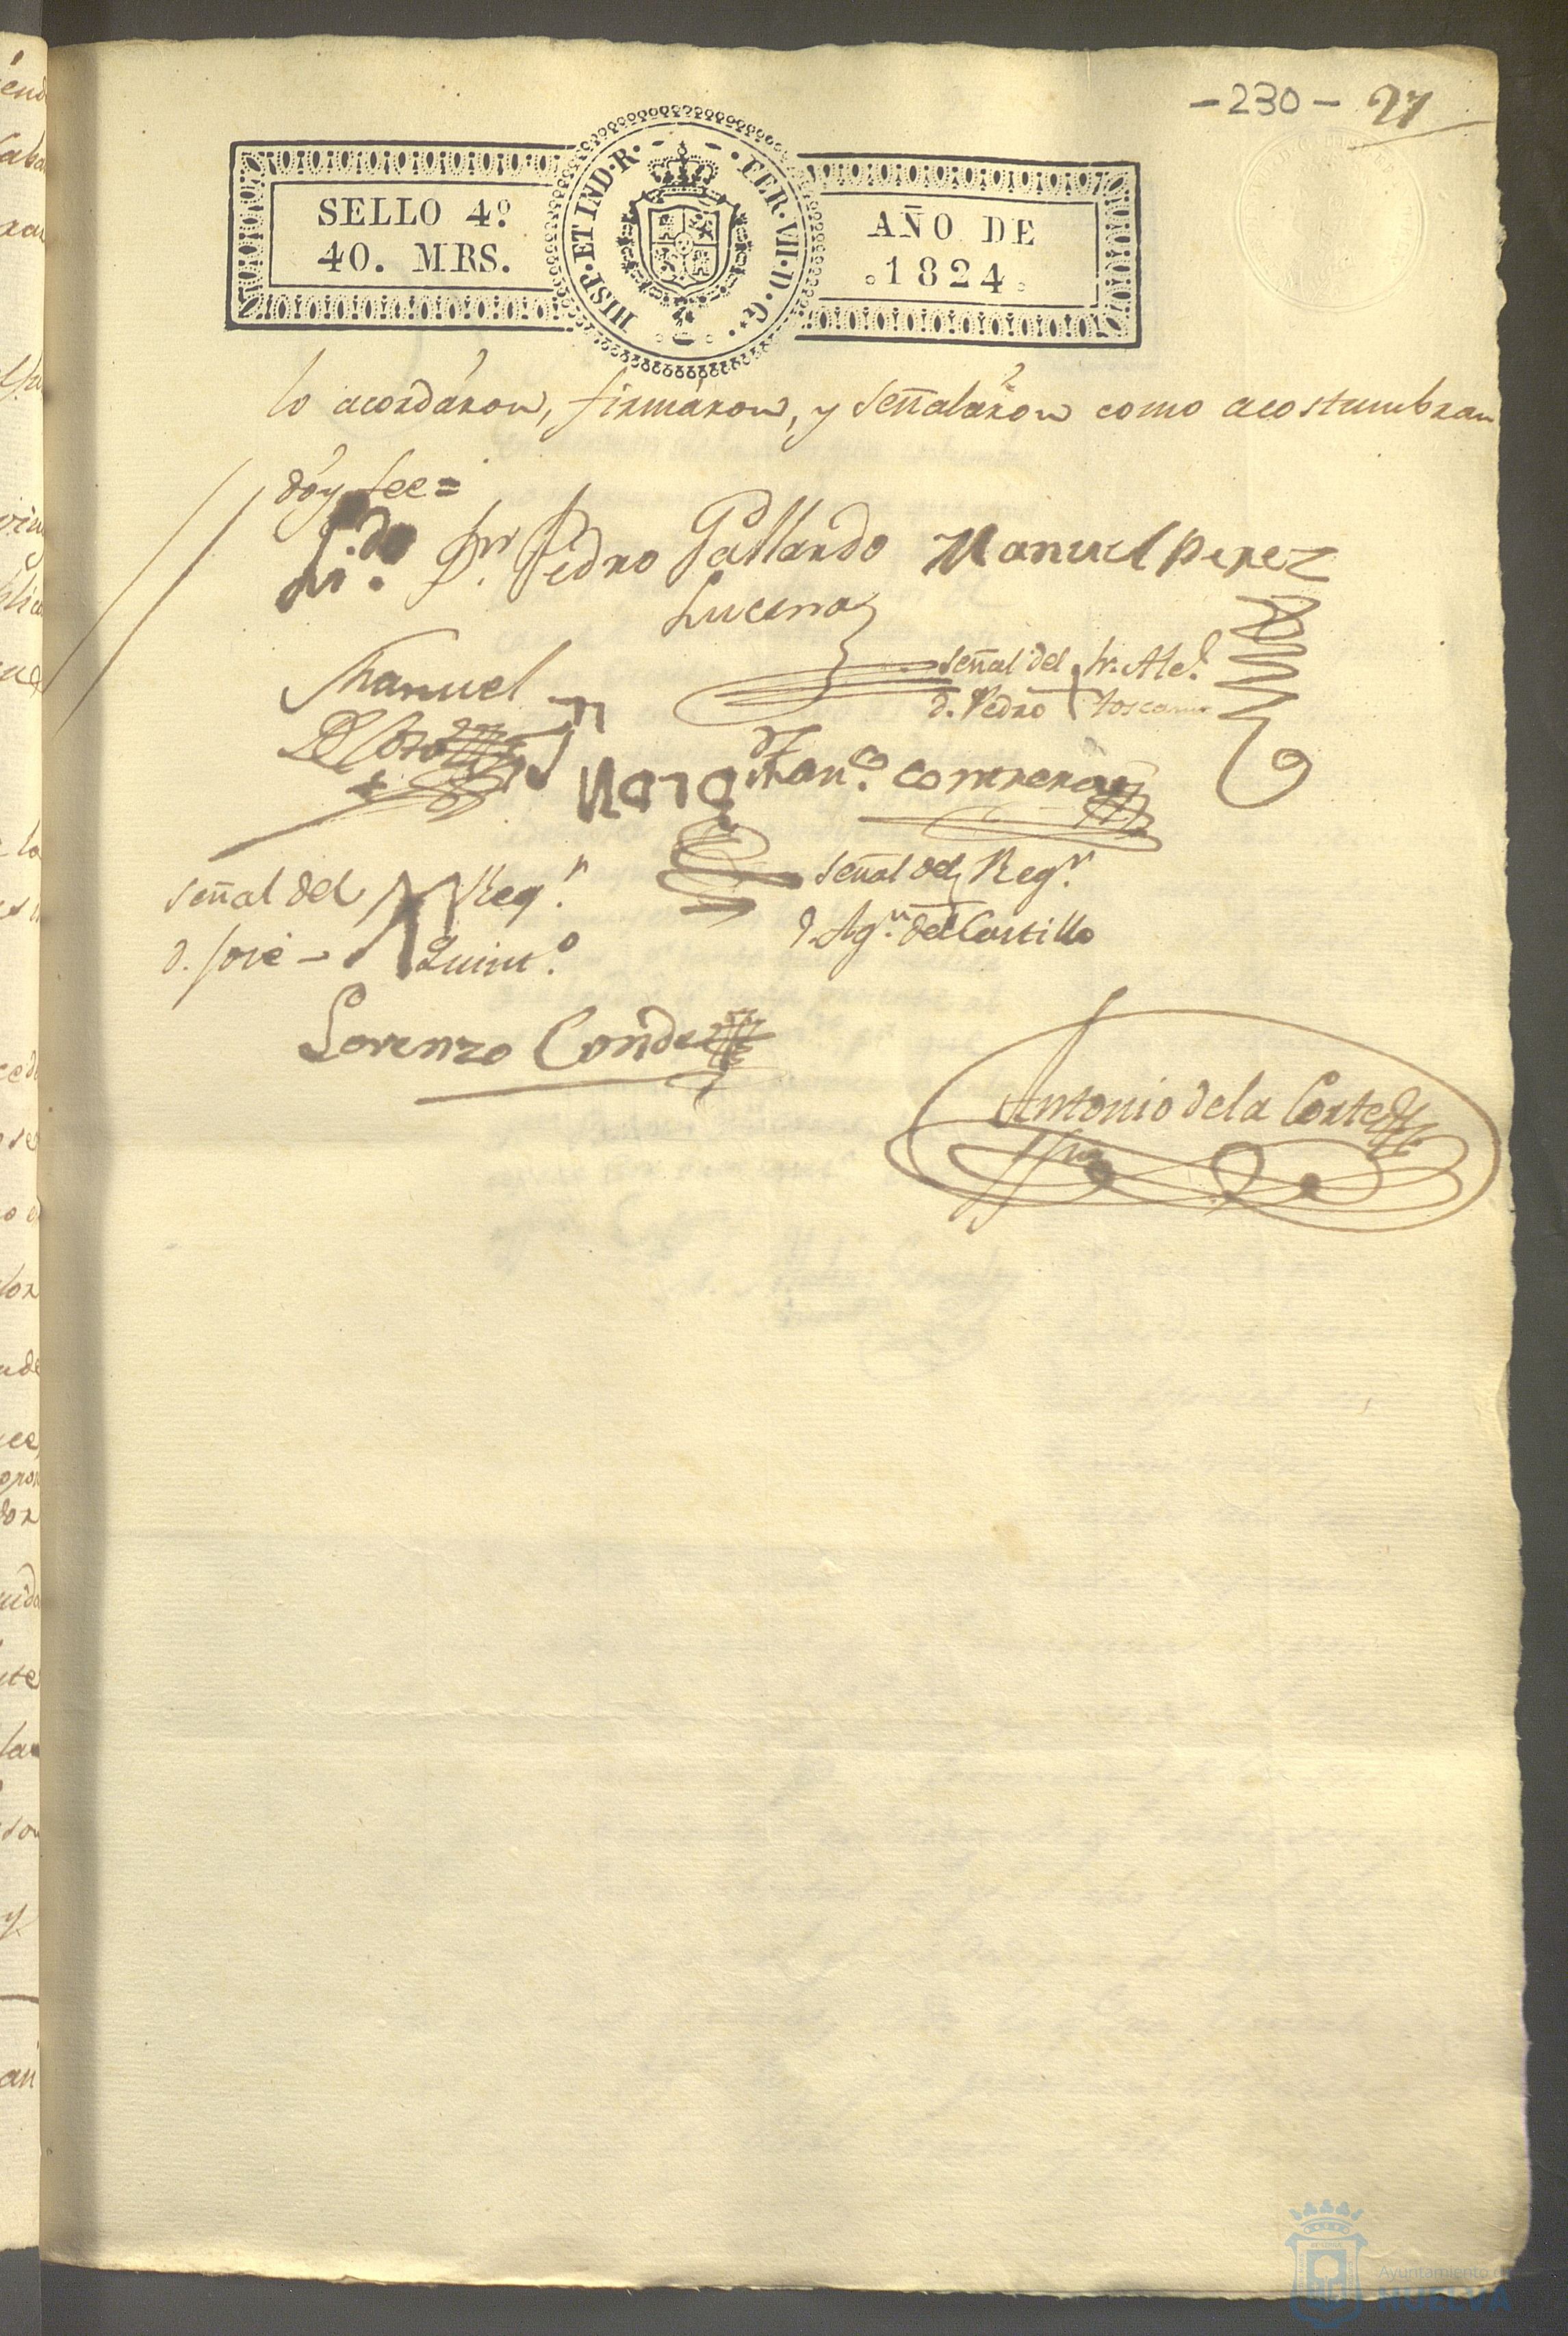 -230- 27
SELLO 4º
40. MRS.
HISP·ET IND·R· FER·VII·D·G·
AÑO DE
1824
lo acordáron, firmáron, y señaláron como acostumbran
dóy fee=
L.do Dn. Pedro Gallardo
Lucena
Manuel perez
Manuel
señal del Sr. Alc.e
d. Pedro Toscano
Man.o contreras
señal del Reg.r
d. José - Quint.o
señal del Reg.r
d. Ag.n del Castillo
Lorenzo Conde
Antonio de la Corte
Ayuntamiento de
HUELVA